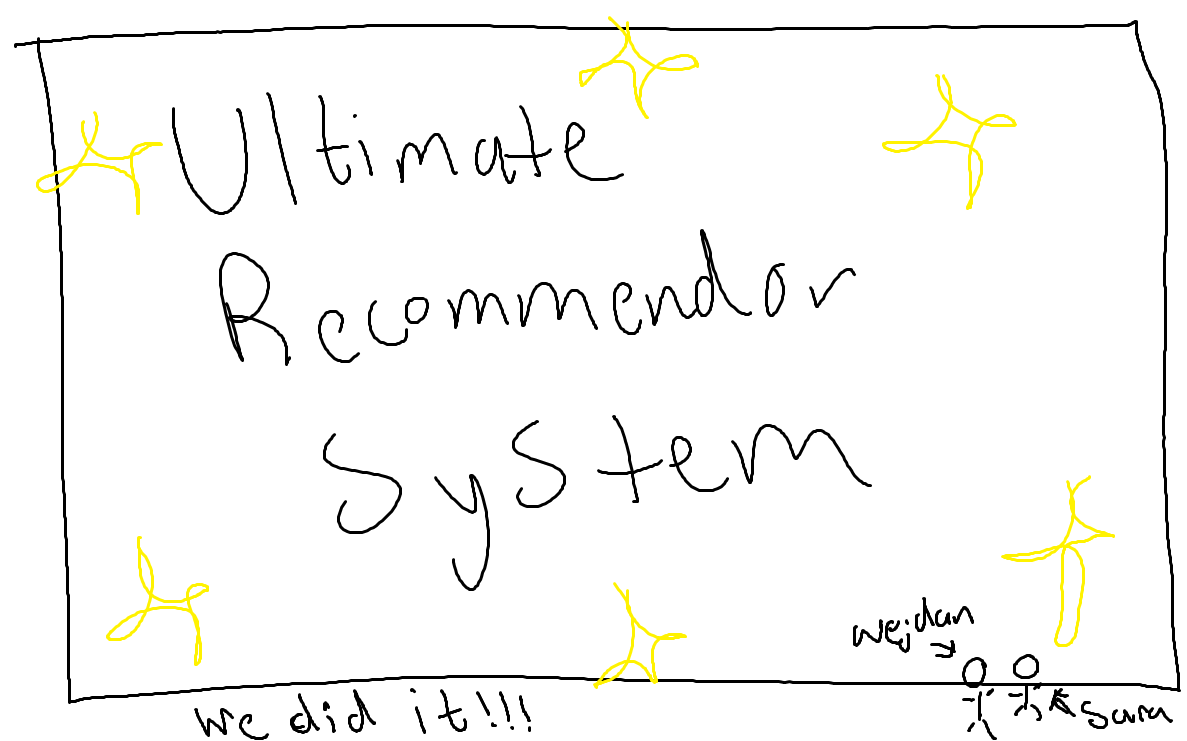 Ultimate
Recommendor
System
wejdan
we did it!!!
Sara